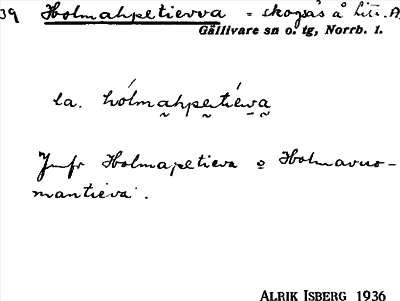 39 Holmahpetievva = skogsås å litt. A.
Gällivare sn o. tg, Norrb. l.
la. hólmahpetiéva
Jmfr Holmapetieva o Holmavuo-
mantieva.
ALRIK ISBERG 1936